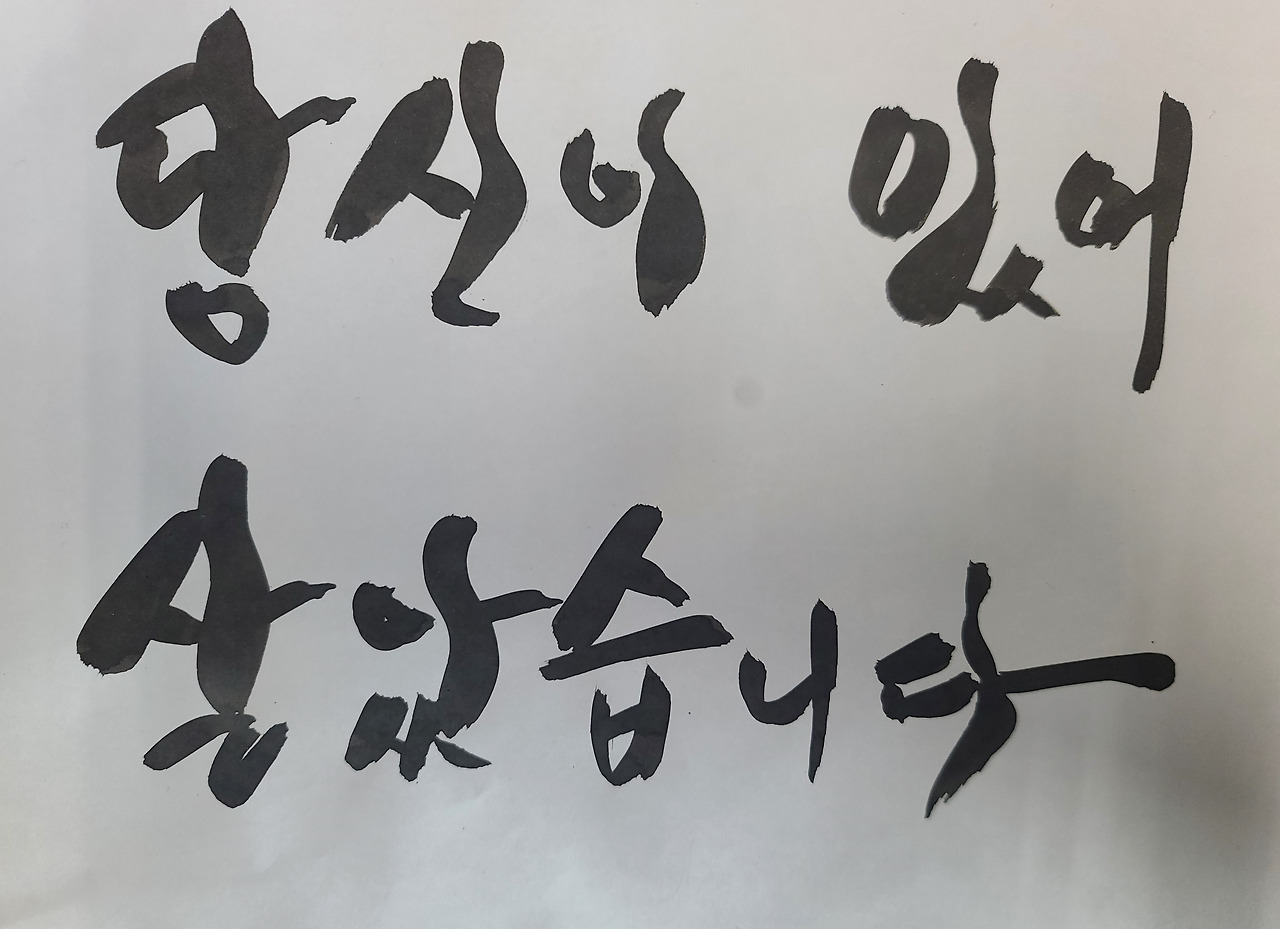 당신이 있어
살았습니다